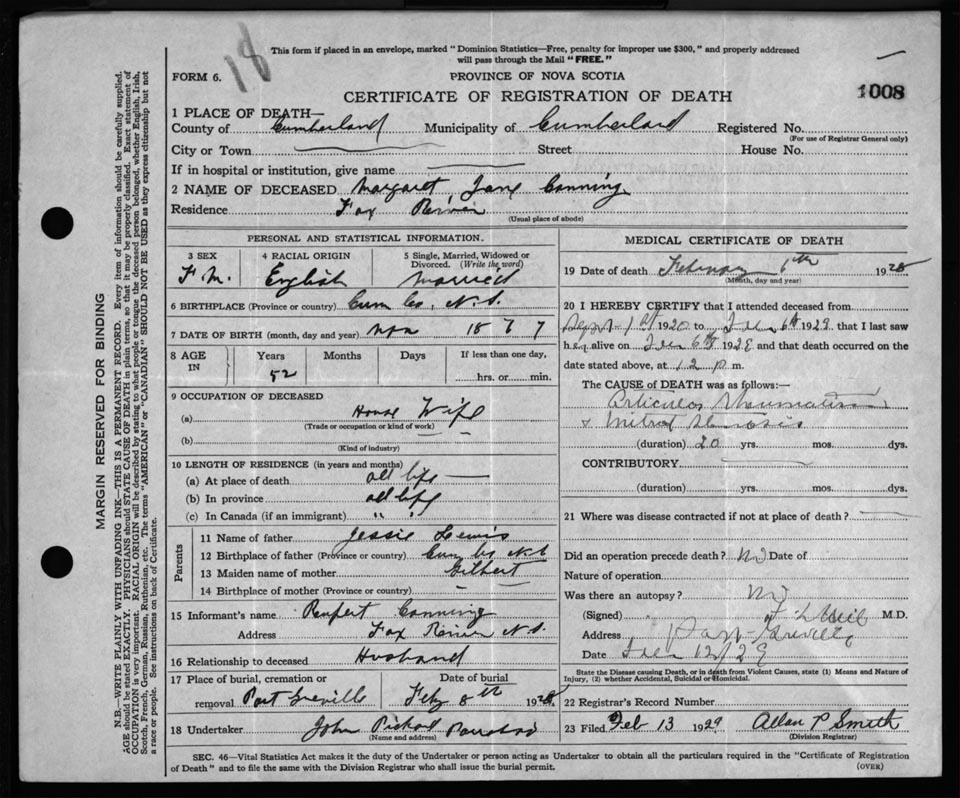 18
This form if placed in an envelope, marked "Dominion Statistics—Free, penalty for improper use $300," and properly addressed
will pass through the Mail "FREE."
FORM 6.
PROVINCE OF NOVA SCOTIA
CERTIFICATE OF REGISTRATION OF DEATH
1008
1 PLACE OF DEATH—
County of Cumberland Municipality of Cumberland Registered No.
(For use of Registrar General only)
City or Town Street House No.
If in hospital or institution, give name
2 NAME OF DECEASED Margaret Jane Canning
Residence Fox River
(Usual place of abode)
PERSONAL AND STATISTICAL INFORMATION.
3 SEX 4 RACIAL ORIGIN 5 Single, Married, Widowed or
Divorced. (Write the word)
English Married
6 BIRTHPLACE (Province or country) Cum Co. N.S.
7 DATE OF BIRTH (month, day and year)
8 AGE IN Years Months Days If less than one day,
52 hrs. or min.
9 OCCUPATION OF DECEASED
(a) House Wife
(Trade or occupation or kind of work)
(b)
(Kind of industry)
10 LENGTH OF RESIDENCE (in years and months)
(a) At place of death all life
(b) In province all life
(c) In Canada (if an immigrant) " "
Parents
11 Name of father Jessie Lewis
12 Birthplace of father (Province or country) Cum Co N.S
13 Maiden name of mother Gilbert
14 Birthplace of mother (Province or country) —
15 Informant's name Rupert Canning
Address Fox River N.S.
16 Relationship to deceased Husband
17 Place of burial, cremation or Date of burial
removal Port Greville Feb 8th 192
18 Undertaker John Parrsboro
(Name and address)
MEDICAL CERTIFICATE OF DEATH
19 Date of death February 6th 192
(Month, day and year)
20 I HEREBY CERTIFY that I attended deceased from
Sept 1st 1920 to Feb 6th 1929 that I last saw
her alive on Feb 6th 1929 and that death occurred on the
date stated above, at 12 p m.
The CAUSE of DEATH was as follows:—
Articular Rheumatism
& Mitral Stenosis
(duration) 20 yrs. mos. dys.
CONTRIBUTORY
(duration) yrs. mos. dys.
21 Where was disease contracted if not at place of death?
Did an operation precede death? No Date of
Nature of operation
Was there an autopsy? No
(Signed) M.D.
Address Port Greville
Date Feb 12/29
State the Disease causing Death, or in death from Violent Causes, state (1) Means and Nature of
Injury, (2) whether Accidental, Suicidal or Homicidal.
22 Registrar's Record Number
23 Filed Feb 13 1929. Allan P Smith
(Division Registrar)
SEC. 46—Vital Statistics Act makes it the duty of the Undertaker or person acting as Undertaker to obtain all the particulars required in the "Certificate of Registration
of Death" and to file the same with the Division Registrar who shall issue the burial permit.
(OVER)
MARGIN RESERVED FOR BINDING
N.B.—WRITE PLAINLY WITH UNFADING INK—THIS IS A PERMANENT RECORD. Every item of information should be carefully supplied.
AGE should be stated EXACTLY. PHYSICIANS should STATE CAUSE OF DEATH in plain terms, so that it may be properly classified. Exact statement of
OCCUPATION is very important. RACIAL ORIGIN will be described by stating to what people or tongue the deceased person belonged, whether English, Irish,
Scotch, French, German, Russian, Ruthenian, etc. The terms "AMERICAN" or "CANADIAN" SHOULD NOT BE USED as they express citizenship but not
a race or people. See instructions on back of Certificate.